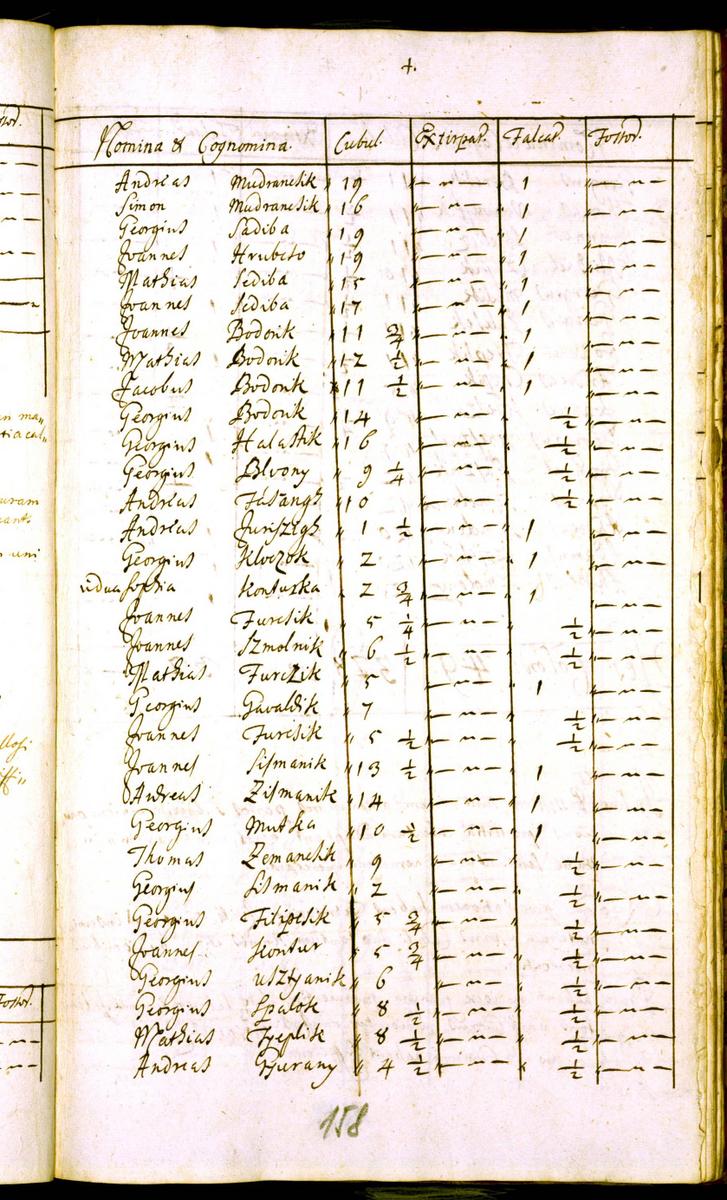 4.
Nomina et Cognomina. Cubul. Extirpat. Falcat. Fossor.
Andreas Mudrancsik " 19 "—"— " 1 "—"—
Simon Mudrancsik " 16 "—"— " 1 "—"—
Georgius Sadiba " 19 "—"— " 1 "—"—
Joannes " 19 "—"— " 1 "—"—
Mathias Sediba " 15 "—"— " 1 "—"—
Joannes Sediba " 17 "—"— " 1 "—"—
Joannes Bodorik " 11 3/4 "—"— " 1 "—"—
Mathias Bodorik " 12 1/2 "—"— " 1 "—"—
Jacobus Bodorik " 11 1/2 "—"— " 1 "—"—
Georgius Bodorik " 14 "—"— " 1/2 "—"—
Georgius Halastik " 16 "—"— " 1/2 "—"—
Georgius " 9 1/4 "—"— " 1/2 "—"—
Andreas " 10 "—"— " 1/2 "—"—
Andreas " 1 1/2 "—"— " 1 "—"—
Georgius Kloczok " 2 "—"— " 1 "—"—
vidua Sophia Konturka " 2 3/4 "—"— " 1 "—"—
Joannes Furcsik " 5 1/4 "—"— " 1/2 "—"—
Joannes Szmolnik " 6 1/2 "—"— " 1/2 "—"—
Mathias Furczik " 5 "—"— " 1 "—"—
Georgius Gavaldik " 7 "—"— " 1/2 "—"—
Joannes Furcsik " 5 1/2 "—"— " 1/2 "—"—
Joannes Sismanik " 13 1/2 "—"— " 1 "—"—
Andreas Zismanik " 14 "—"— " 1 "—"—
Georgius Mutska " 10 1/2 "—"— " 1 "—"—
Thomas Zemancsik " 9 "—"— " 1/2 "—"—
Georgius Sismanik " 2 "—"— " 1/2 "—"—
Georgius Filipcsik " 5 3/4 "—"— " 1/2 "—"—
Joannes Kontur " 5 3/4 "—"— " 1/2 "—"—
Georgius Usztyanik " 6 "—"— " 1/2 "—"—
Georgius Spalok " 8 1/2 "—"— " 1/2 "—"—
Mathias Tyeplik " 8 1/2 "—"— " 1/2 "—"—
Andreas Gyurany " 4 1/2 "—"— " 1/2 "—"—
158